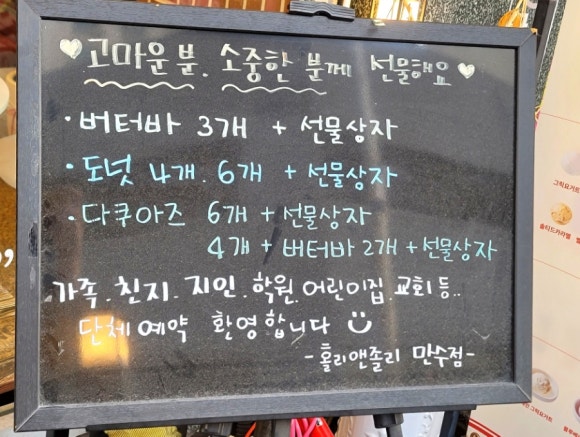 ♥고마운분. 소중한 분께 선물해요♥
· 버터바 3개 + 선물상자
· 도넛 4개. 6개 + 선물상자
· 다쿠아즈 6개 + 선물상자
4개 + 버터바 2개 + 선물상자
가족. 친지. 지인. 학원. 어린이집. 교회 등..
단체예약 환영합니다
- 홀리앤졸리 만수점 -
그릭요거트
솔티드카라멜